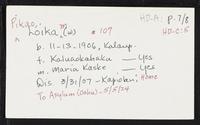 Pikao, HD-A: P. 7/8
Loika, (w) # 109 HD-C:5
b. 11-13-1906, Kalaup.
f. Kaluaokahaka — Yes
m. Maria Kaske — Yes
Dis. 3/31/07 - Kapiolani Home
To Asylum (Oahu) - 5/5/24